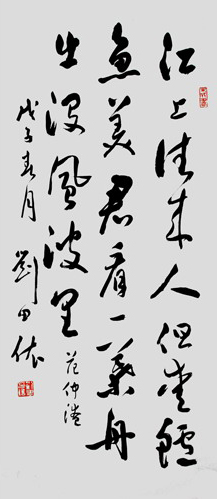 江上往来人但爱鲈
鱼美君看一叶舟
出没风波里 范仲淹
戊子春月 刘田依